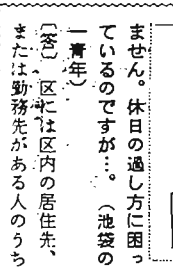 ません。休日の過し方に困っ
ているのですが…。（池袋の
一青年）
〔答〕　区には区内の居住先、
または勤務先がある人のうち